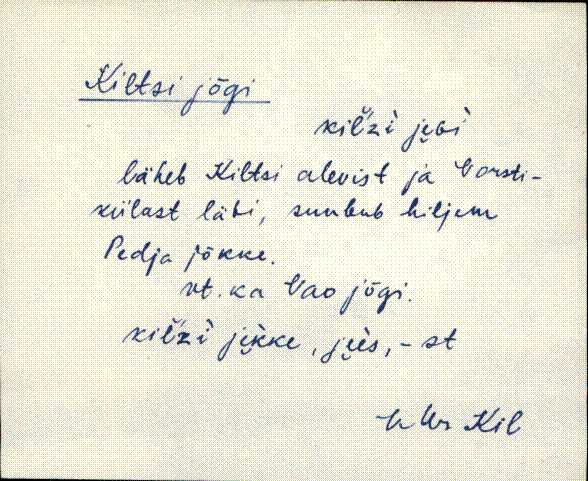 Kiltsi jõgi
kil̆'zì je̮Gì
läheb Kiltsi alevist ja Vorsti-
külast läbi, suubub hiljem
Pedja jõkke.
vt. ka Vao jõgi.
kil̆'zì je̮kke, je̮ès, -st
Kil